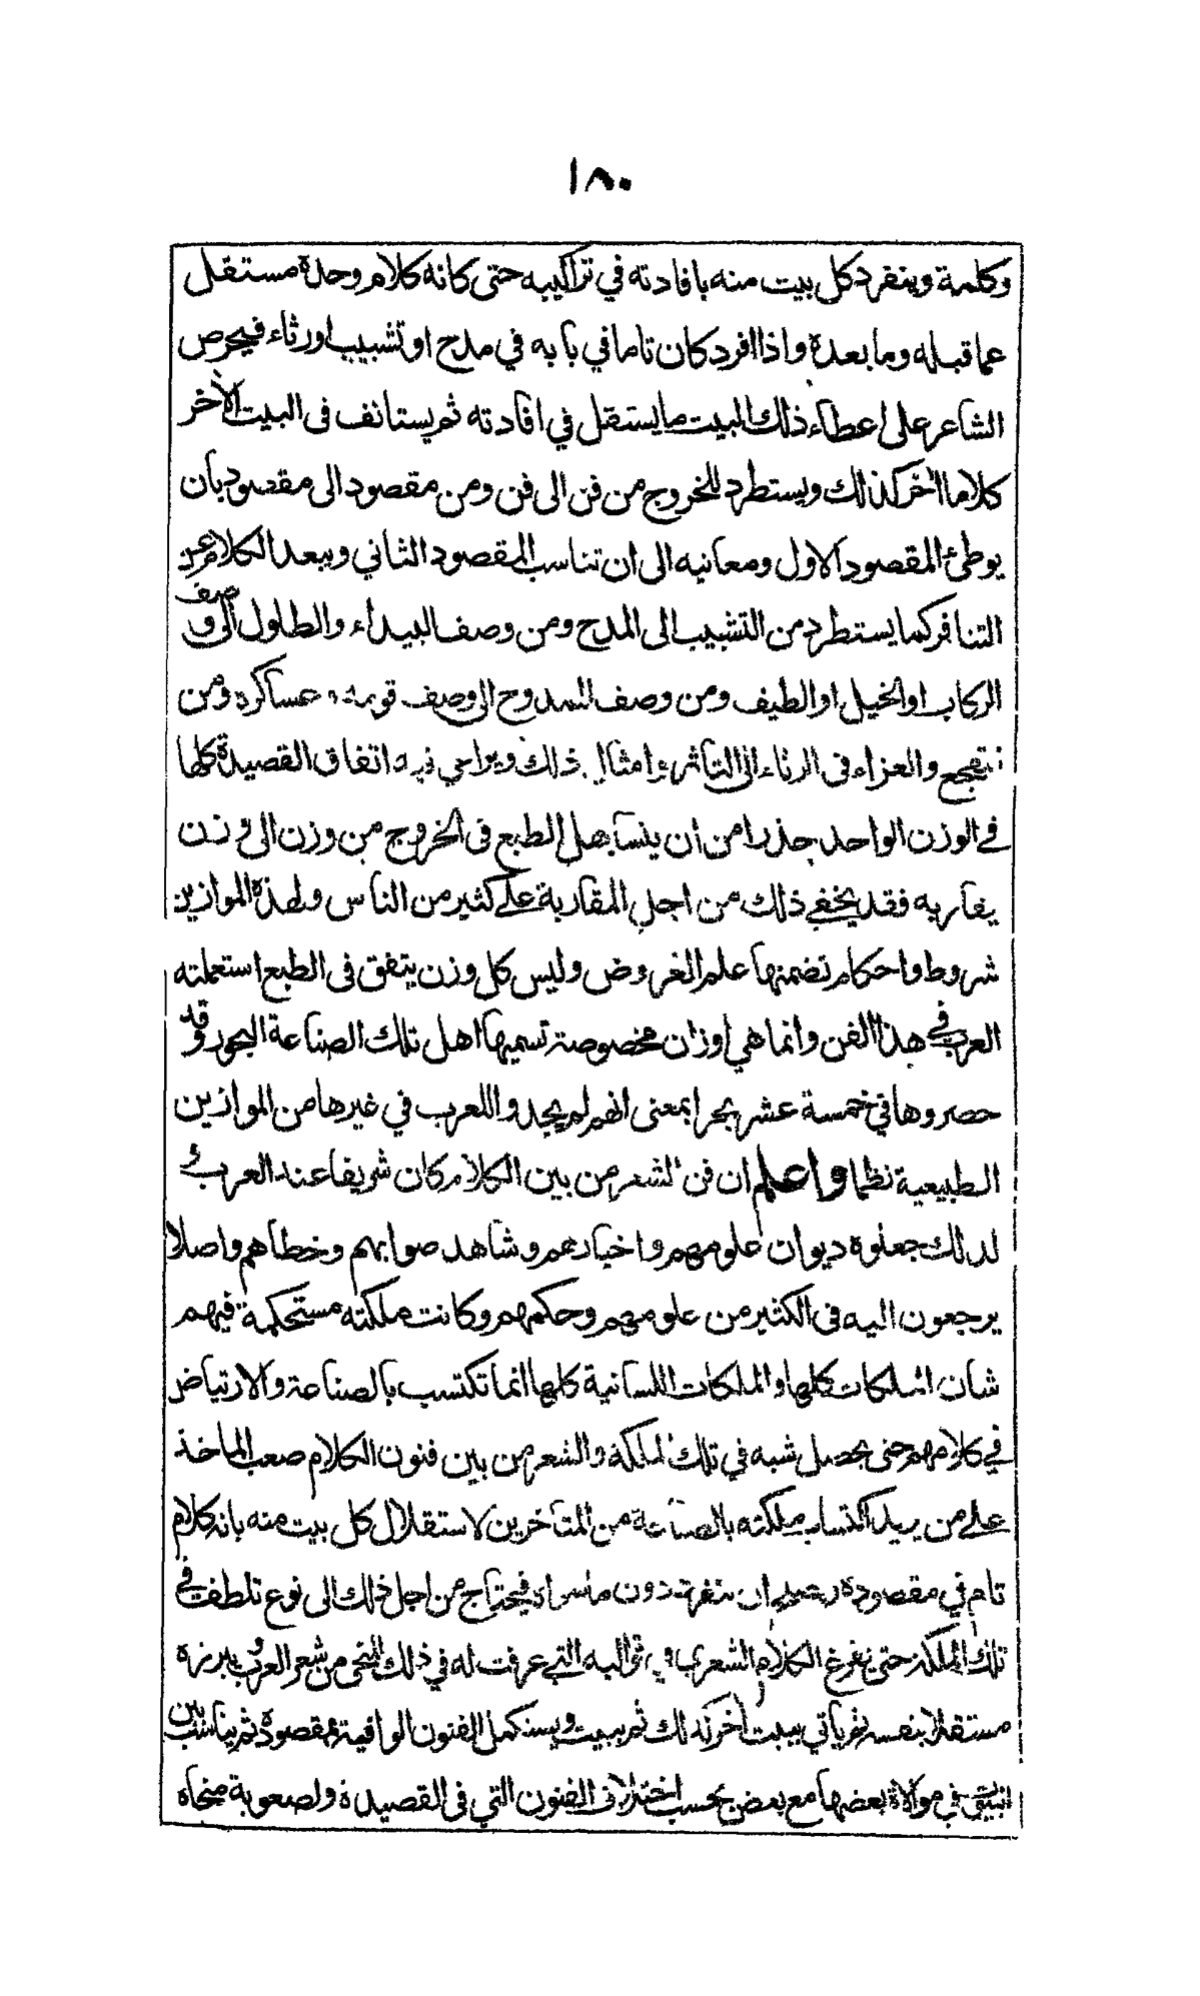 ١٨٠
وكلمة وينفرد كل بيت منه بافادته في تراكيبه حتى كانه كلام وحدة مستقل
عما قبله وما بعدة واذا افرد كان تاما في بابه في مدح او تشبيب او رثاء فيحرص
الشاعر على اعطاء ذلك البيت ما يستقل في افادته ثم يستانف فى البيت الأخر
كلاما أخر كذلك ويستطرد للخروج من فن الى فن ومن مقصود الى مقصود بان
يوطئ المقصود الاول ومعانيه الى ان تناسب المقصود الثاني ويبعد الكلام عن
التنافر كما يستطرد من التشبيب الى المدح ومن وصف البيداء والطلول الى وصف
الركاب او الخيل او الطيف ومن وصف الممدوح الى وصف قومه وعساكره ومن
التفجع والعزاء فى الرثاء الى التأثر وامثال ذلك ويراعي فيه اتفاق القصيدة كلها
في الوزن الواحد حذرا من ان يتساهل الطبع فى الخروج من وزن الى وزن
يقاربه فقد يخفي ذلك من اجل المقاربة علے كثير من الناس ولهذة الموازين
شروط واحكام تضمنها علم العروض وليس كل وزن يتفق فى الطبع استعملته
العرب في هذا الفن وانما هي اوزان مخصوصة تسميها اهل تلك الصناعة البحور وقد
حصروها في خمسة عشر بحرا بمعنى انهم لم يجدوا للعرب في غيرها من الموازين
الطبيعية نظما واعلم ان فن الشعر من بين الكلام كان شريفا عند العرب و
لذلك جعلوة ديوان علومهم واخبارهم وشاهد صوابهم وخطاهم واصلا
يرجعون اليه فى الكثير من علومهم وحكمهم وكانت ملكته مستحكمة فيهم
شان الملكات كلها والملكات اللسانية كلها انما تكتسب بالصناعة والارتياض
في كلامهم حتى يحصل شبه في تلك الملكة والشعر من بين فنون الكلام صعب الماخذ
علے من يريد اكتساب ملكته بالصناعة من المتأخرين لاستقلال كل بيت منه بانه كلام
تام في مقصودة ويصلح ان ينفرد دون ما سواه فيحتاج من اجل ذلك الى نوع تلطف في
تلك الملكة حتى يفرغ الكلام الشعرى فى قوالبه التي عرفت له في ذلك المنحى من شعر العرب ويبرزة
مستقلا بنفسه ثم ياتي ببيت أخر كذلك ثم ببيت ويستكمل الفنون الوافية بمقصودة ثم يناسب بين
البيوت في موالاة بعضها مع بعض بحسب اختلاف الفنون التي فى القصيدة ولصعوبة منحاه